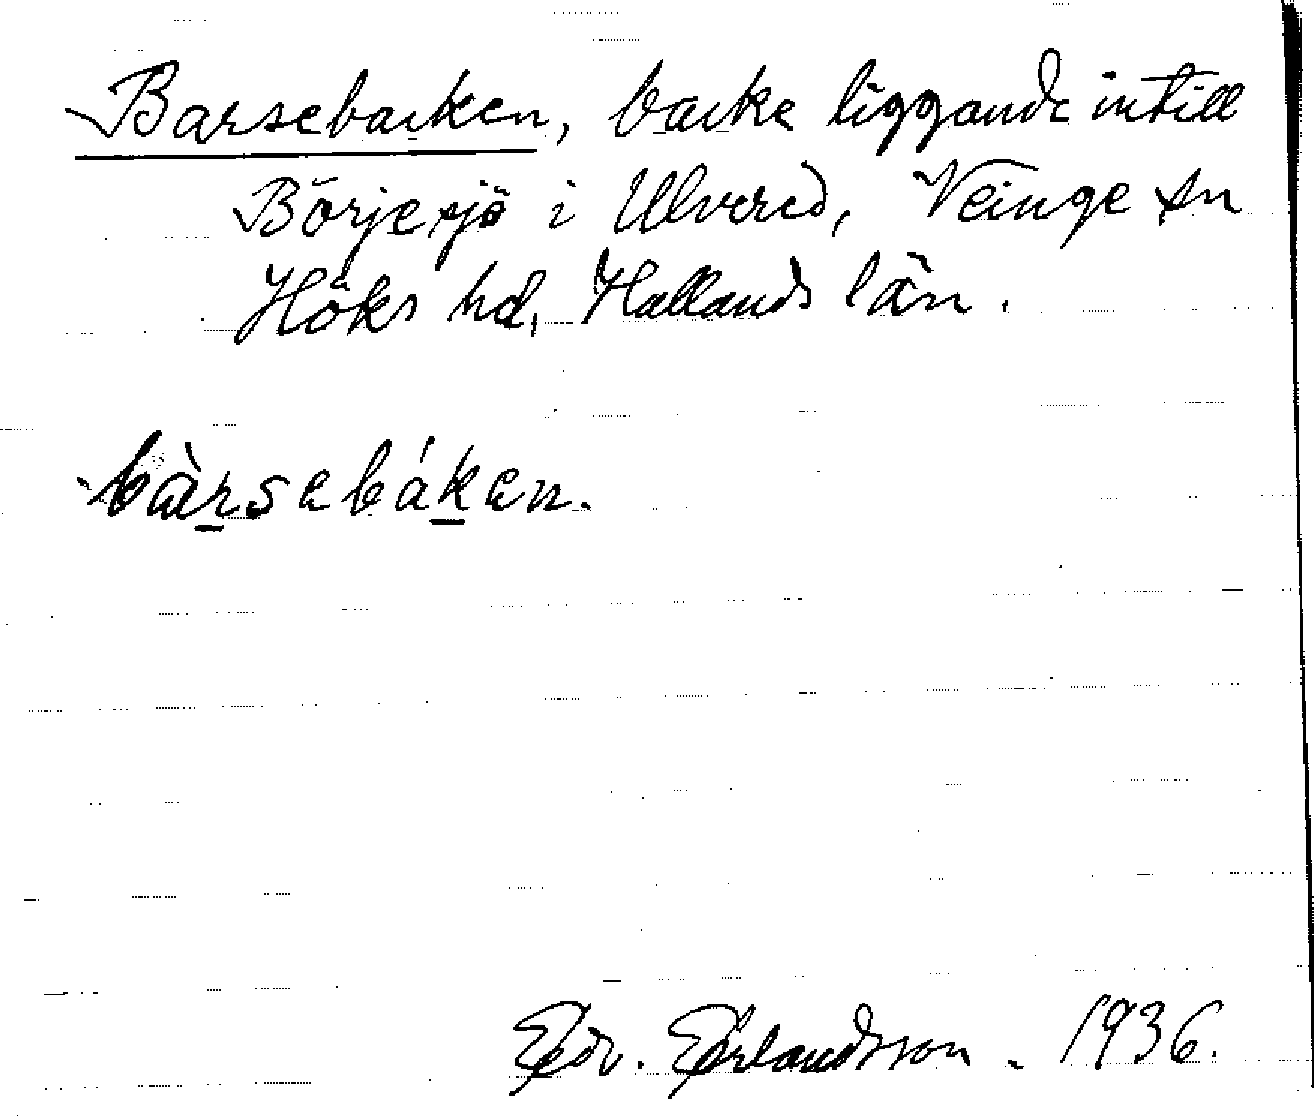 Barsebacken, backe liggande intill
Börjesjö i Ulvered, Veinge sn
Höks hd, Hallands län.
bàrsebáken.
Edv. Erlandsson. 1936.